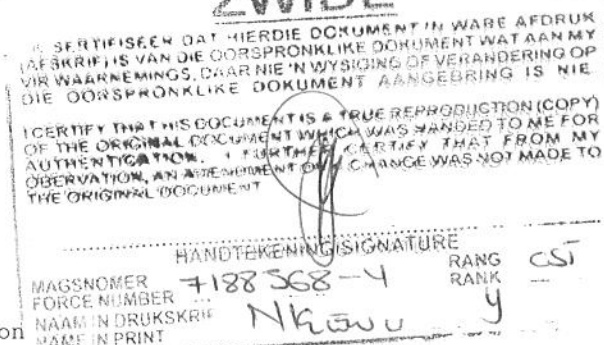 ZWIDE
SERTIFISEER DAT HIERDIE DOKUMENT 'N WARE AFDRUK
(AFSKRIF) IS VAN DIE OORSPRONKLIKE DOKUMENT WAT AAN MY
VIR WAARNEMINGS, DAAR NIE 'N WYSIGING OF VERANDERING OP
DIE OORSPRONKLIKE DOKUMENT AANGEBRING IS NIE
I CERTIFY THAT THIS DOCUMENT IS A TRUE REPRODUCTION (COPY)
OF THE ORIGINAL DOCUMENT WHICH WAS HANDED TO ME FOR
AUTHENTICATION. I FURTHER CERTIFY THAT FROM MY
OBERVATION, AN AMENDMENT OR A CHANGE WAS NOT MADE TO
THE ORIGINAL DOCUMENT
HANDTEKENING/SIGNATURE
MAGSNOMER 7188568-4 RANG CST
FORCE NUMBER RANK
NAAM IN DRUKSKRIF y
on NAME IN PRINT